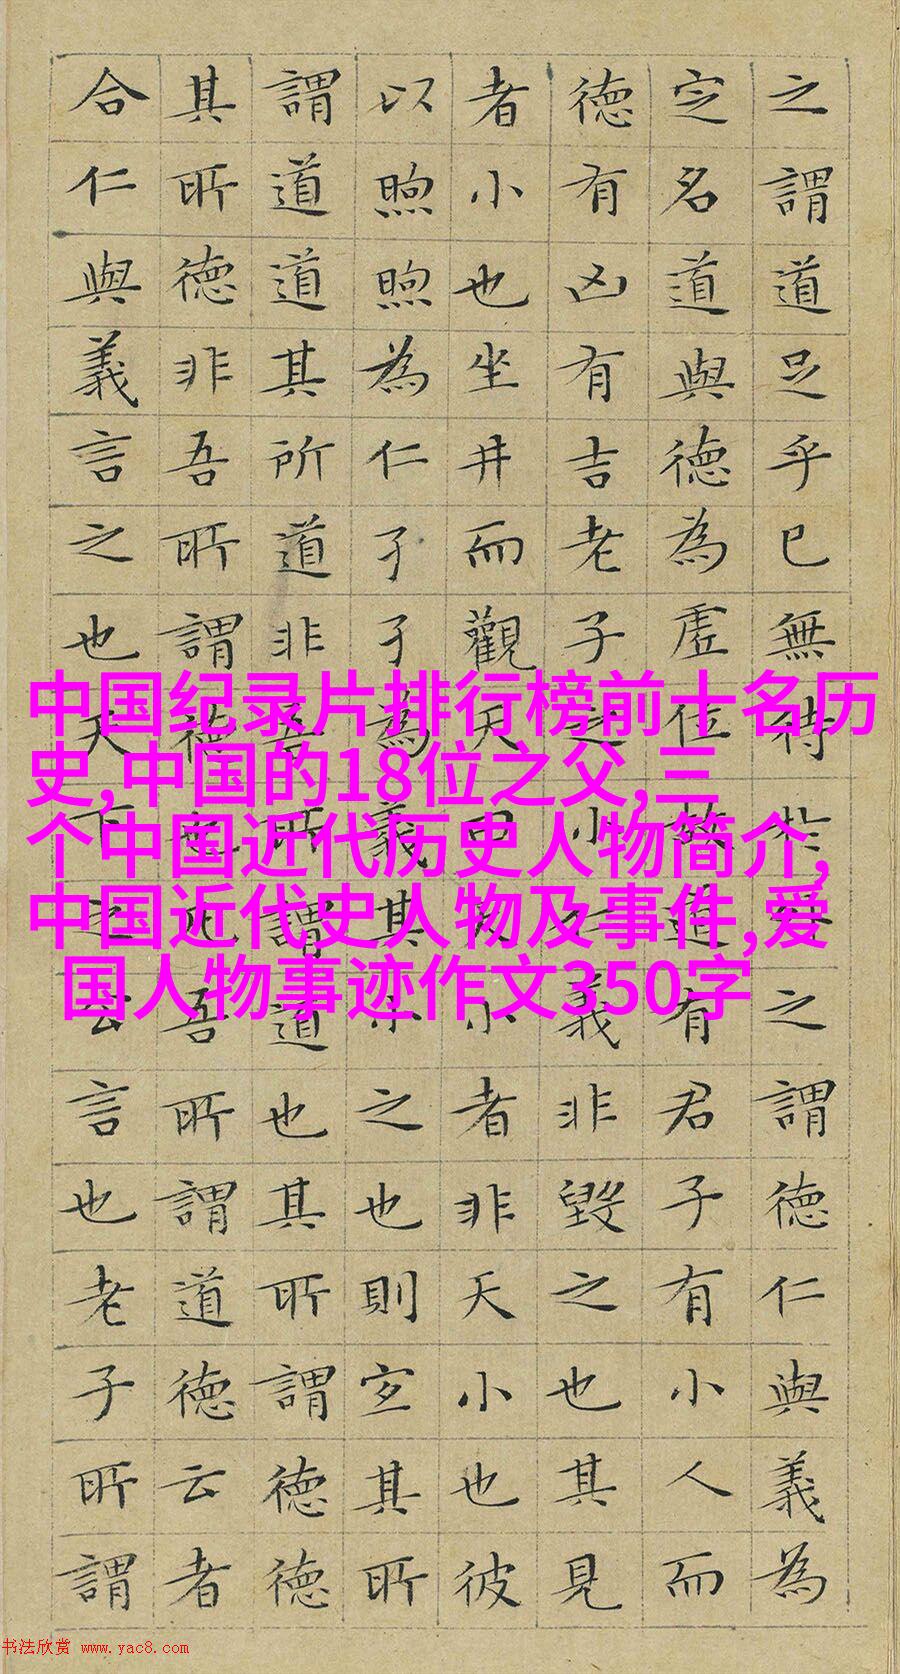 之謂道足乎已無待於之謂德仁與義為
定名道與德為虛位故道有君子有小人而
德有凶有吉老子之小義非毀之也其見
者小也坐井而觀天曰小者非天小也彼
以煦煦為仁孑孑為義其小之也則宜其所
謂道道其所道非吾所謂道也其所謂德德
其所德非吾所謂德也凡吾所謂道德云者
合仁與義言之也天下之公言也老子所謂
中国纪录片排行榜前十名历
史,中国的18位之父,三
个中国近代历史人物简介,
中国近代史人物及事件,爱
国人物事迹作文350字
书法欣赏 www.yac8.com